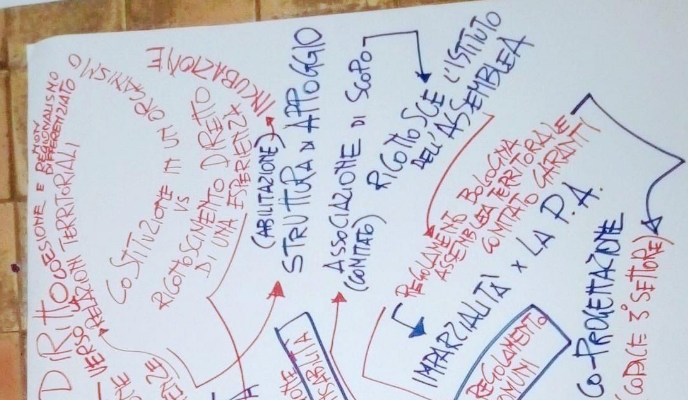 DIRITTO
COESIONE E REGIONALISMO
NON DIFFERENZIATO
VERSO RELAZIONI TERRITORIALI
COSTITUZIONE IN UN ORGANISMO
VS
RICONOSCIMENTO DIRETTO
DI UNA ESPERIENZA
INCUBAZIONE
(ABILITAZIONE)
STRUTTURA DI APPOGGIO
ASSOCIAZIONE DI SCOPO
(COMITATO)
RICONOSCE L'ISTITUTO
DELL'ASSEMBLEA
REGOLAMENTO BOLOGNA
ASSEMBLEA TERRITORIALE
COMITATO GARANTI
IMPARZIALITÀ X LA P.A.
REGOLAMENTO
COMUNI
CO-PROGETTAZIONE
(CODICE 3° SETTORE)